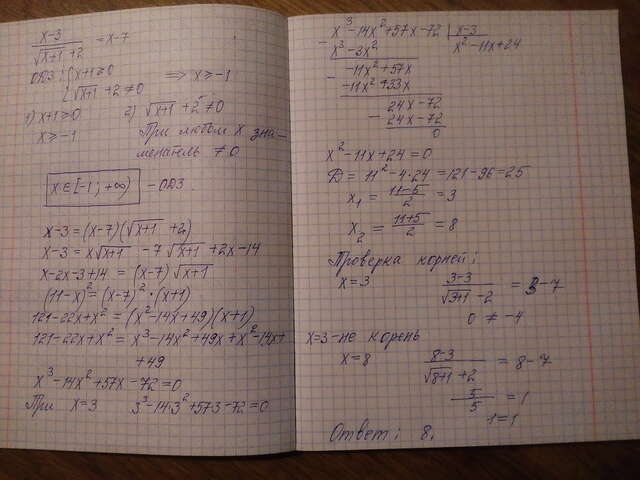 x-3/(√(x+1) + 2) = x-7
ОДЗ: { x+1 ≥ 0
{ √(x+1) + 2 ≠ 0 ⟹ x ≥ -1
1) x+1 ≥ 0
x ≥ -1
2) √(x+1) + 2 ≠ 0
При любом x зна-
менатель ≠ 0
x ∈ [-1; +∞) - ОДЗ.
x-3 = (x-7)(√(x+1) + 2)
x-3 = x√(x+1) - 7√(x+1) + 2x-14
x-2x-3+14 = (x-7)√(x+1)
(11-x)² = (x-7)² · (x+1)
121-22x+x² = (x²-14x+49)(x+1)
121-22x+x² = x³-14x²+49x+x²-14x+
+49
x³-14x²+57x-72=0
При x=3 3³-14·3²+57·3-72=0
x³-14x²+57x-72 | x-3
x³-3x² | x²-11x+24
-11x²+57x
-11x²+33x
24x-72
24x-72
0
x²-11x+24=0
Д = 11²-4·24=121-96=25
x₁ = (11-5)/2 = 3
x₂ = (11+5)/2 = 8
Проверка корней:
x=3 (3-3)/(√(3+1) -2) = 3-7
0 ≠ -4
x=3 - не корень
x=8 (8-3)/(√(8+1) +2) = 8-7
5/5 = 1
1=1
Ответ: 8.